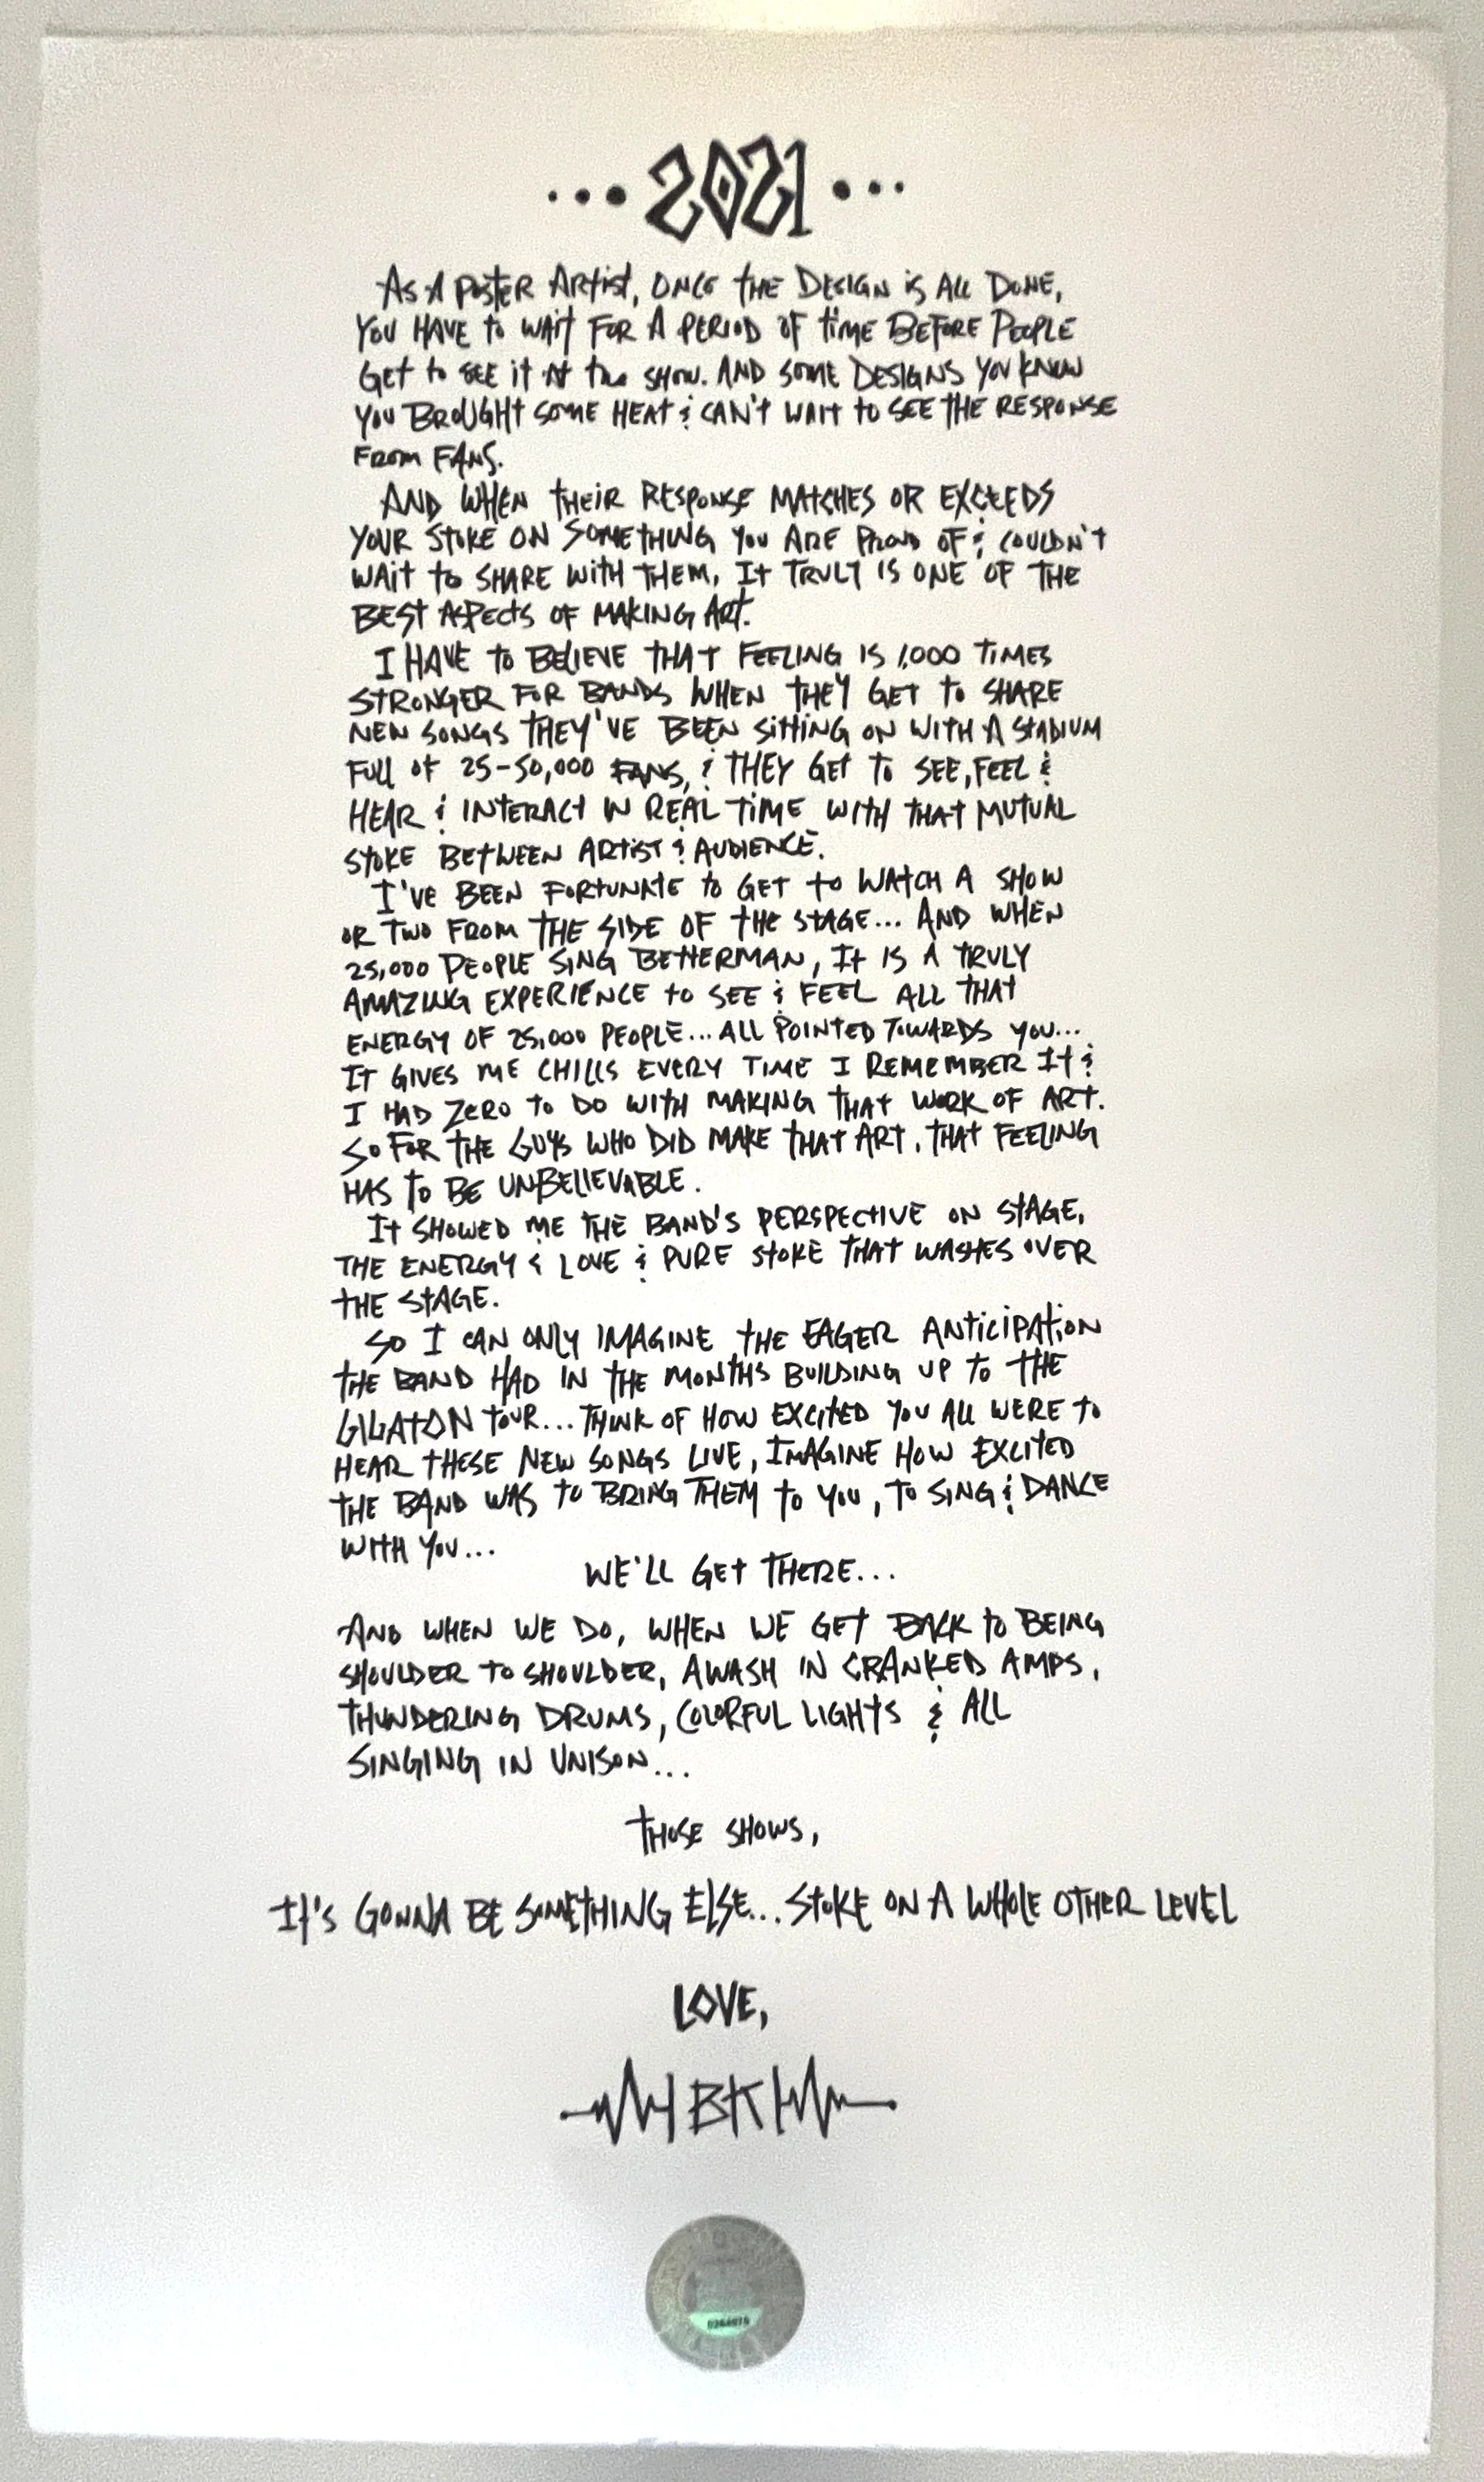 ...2021...
As A Poster Artist, once the Design is All Done,
You Have to wait for a period of time Before People
Get to see it at the show. And some Designs you know
you Brought some heat & can't wait to see the response
from Fans.
And when their response matches or exceeds
your stoke on something you are proud of & couldn't
wait to share with them, it truly is one of the
best aspects of making art.
I have to believe that feeling is 1,000 times
stronger for bands when they get to share
new songs they've been sitting on with a stadium
full of 25-50,000 fans, & they get to see, feel &
hear & interact in real time with that mutual
stoke between artist & audience.
I've been fortunate to get to watch a show
or two from the side of the stage... And when
25,000 people sing Betterman, it is a truly
amazing experience to see & feel all that
energy of 25,000 people... all pointed towards you...
It gives me chills every time I remember it &
I had zero to do with making that work of art.
So for the guys who did make that art, that feeling
has to be unbelievable.
It showed me the band's perspective on stage,
the energy & love & pure stoke that washes over
the stage.
So I can only imagine the eager anticipation
the band had in the months building up to the
Gigaton tour... Think of how excited you all were to
hear these new songs live, imagine how excited
the band was to bring them to you, to sing & dance
with you...
We'll get there...
And when we do, when we get back to being
shoulder to shoulder, awash in cranked amps,
thundering drums, colorful lights & all
singing in unison...
Those shows,
It's gonna be something else... Stoke on a whole other level
Love,
BK